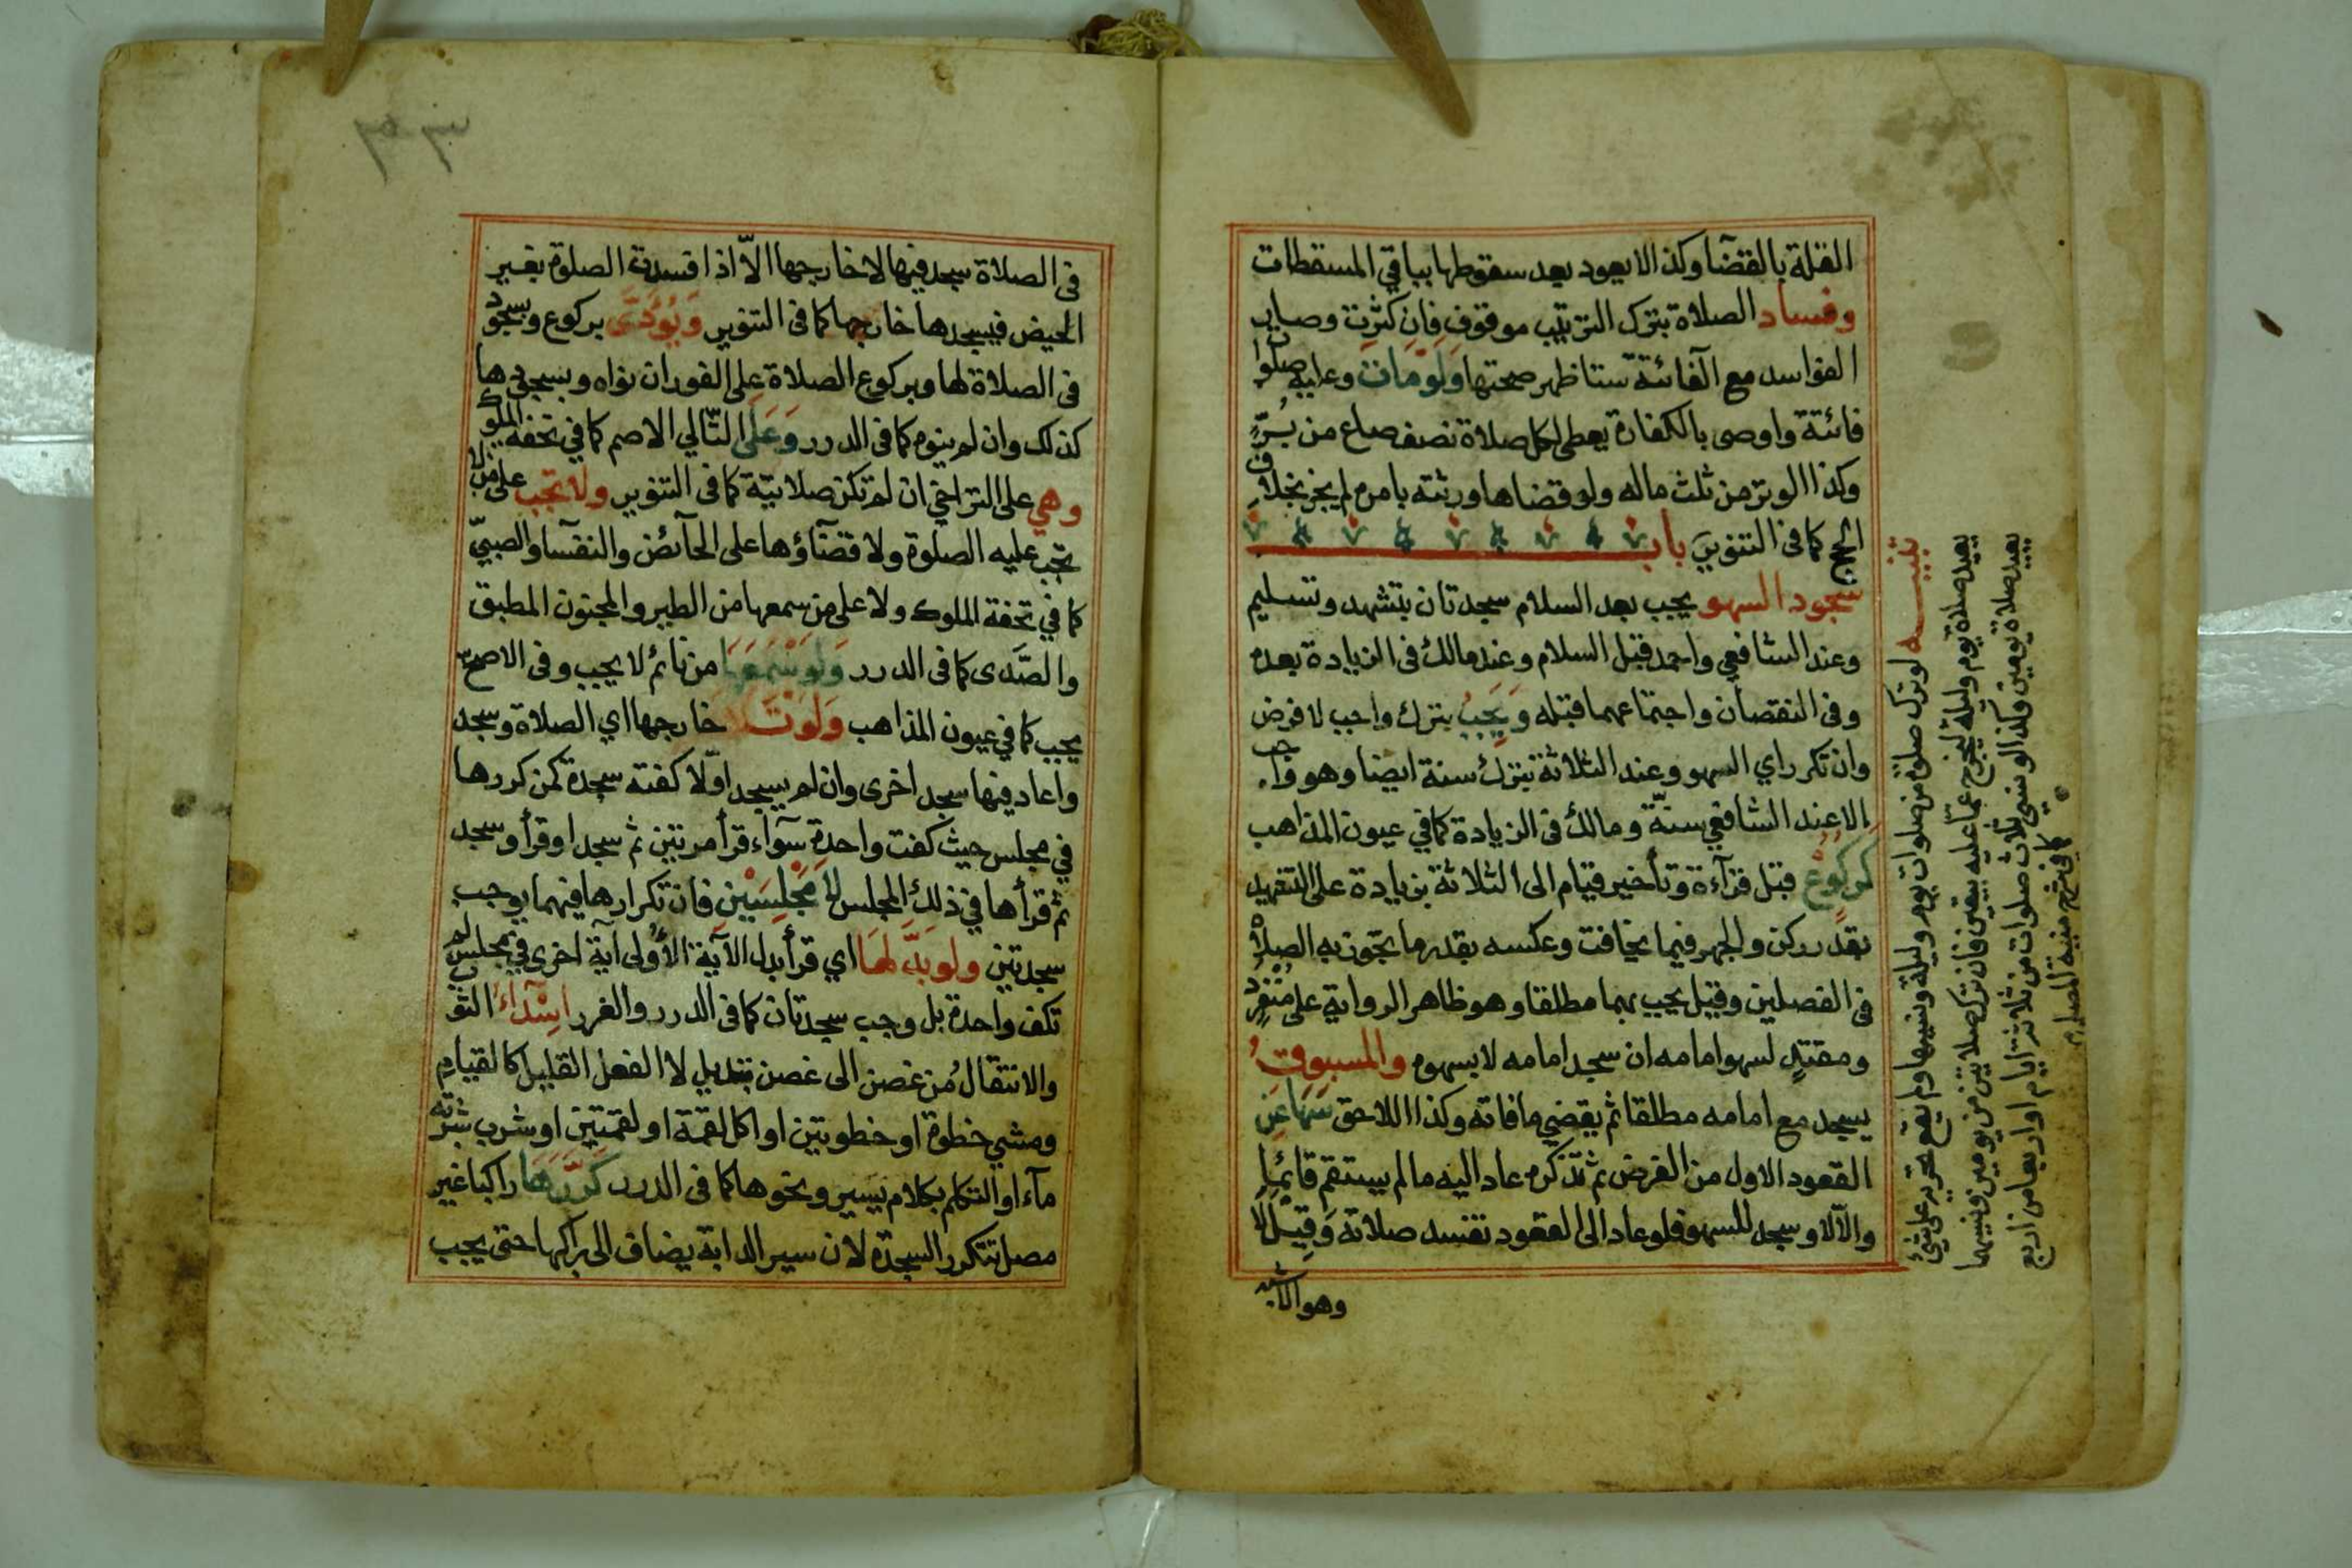 القلة بالقضآ وكذا لا يعود بعد سقوطها بباقي المسقطات
وفساد الصلاة بترك الترتيب موقوف فان كثرت وصارت
الفواسد مع الفائتة ستا ظهر صحتها ولو مات وعليه صلوا
فائتة واوصى بالكفارة يعطى لكل صلاة نصف صاع من بُرّ
وكذا الوتر من ثلث ماله ولو قضاها ورثته بامره لم يجز بخلاف
الحج كما في التنوير باب
سجود السهو يجب بعد السلام سجدتان بتشهد وتسليم
وعند الشافعي واحمد قبل السلام وعند مالك في الزيادة بعده
وفى النقصان واجتماعهما قبله ويجب بترك واجب لا فرض
وان تكرر اي السهو وعند الثلاثة بترك سنة ايضا وهو واجب
الا عند الشافعي سنّة ومالك فى الزيادة كما في عيون المذاهب
كركوع قبل قرآءة وتأخير قيام الى الثلاثة بزيادة على التشهد
بقدر ركن والجهر فيما يخافت وعكسه بقدر ما تجوز به الصلاة
فى الفصلين وقيل يجب بهما مطلقا وهو ظاهر الرواية على منفرد
ومقتدٍ لسهو امامه ان سجد امامه لا بسهوه والمسبوق
يسجد مع امامه مطلقا ثم يقضي ما فاته وكذا اللاحق سها عن
القعود الاول من الفرض ثم تذكره عاد اليه ما لم يستقم قائما
والا لا وسجد للسهو فلو عاد الى القعود تفسد صلاته وقيل لا
وهو الاشبه
تنبيه لو ترك صلوة من صلوات يوم وليلة ونسيها ولم يقع تحريه على شئ
يعيد صلاة يوم وليلة ليخرج عما عليه بيقين فان ترك صلاتين من يومين ونسيهما
يعيد صلاة يومين وكذا لو نسي ثلاث صلوات من ثلاثة ايام او اربعا من اربع
كما في شرح منية المصلي
٣٣
فى الصلاة سجد فيها لا خارجها الاّ اذا فسدت الصلوة بغير
الحيض فيسجدها خارجها كما فى التنوير ويؤدّى بركوع وسجود
فى الصلاة لها وبركوع الصلاة على الفور ان نواه وبسجودها
كذلك وان لم ينوه كما فى الدرر وعلى التّالي الاصم كما في تحفة الملوك
وهي على التراخي ان لم تكن صلاتيّة كما فى التنوير ولا تجب على من لا
تجب عليه الصلوة ولا قضآؤها على الحآئض والنفسآ والصبيّ
كما في تحفة الملوك ولا على من سمعها من الطير والمجنون المطبق
والصّدى كما فى الدرر ولو سمعها من نائم لا يجب وفى الاصح
يجب كما في عيون المذاهب ولو تلا خارجها اي الصلاة وسجد
واعاد فيها سجد اخرى وان لم يسجد اوّلا كفته سجدة كمن كررها
في مجلس حيث كفت واحدة سوآء قرأ مرتين ثم سجد او قرأ وسجد
ثم قرأها في ذلك المجلس لا مجلسين فان تكرارها فيهما يوجب
سجدتين ولو بدّلها اي قرأ بدل الآية الأولى آية اخرى في مجلس لم
تكف واحدة بل وجب سجدتان كما فى الدرر والغرر اسدآء الثوب
والانتقال من غصن الى غصن تبديل لا الفعل القليل كالقيام
ومشي خطوة او خطوتين او اكل لقمة او لقمتين او شرب شربة
مآء او التكلم بكلام يسير ونحوها كما فى الدرر كرّرها راكبا غير
مصل تتكرر السجدة لان سير الدابة يضاف الى راكبها حتى يجب